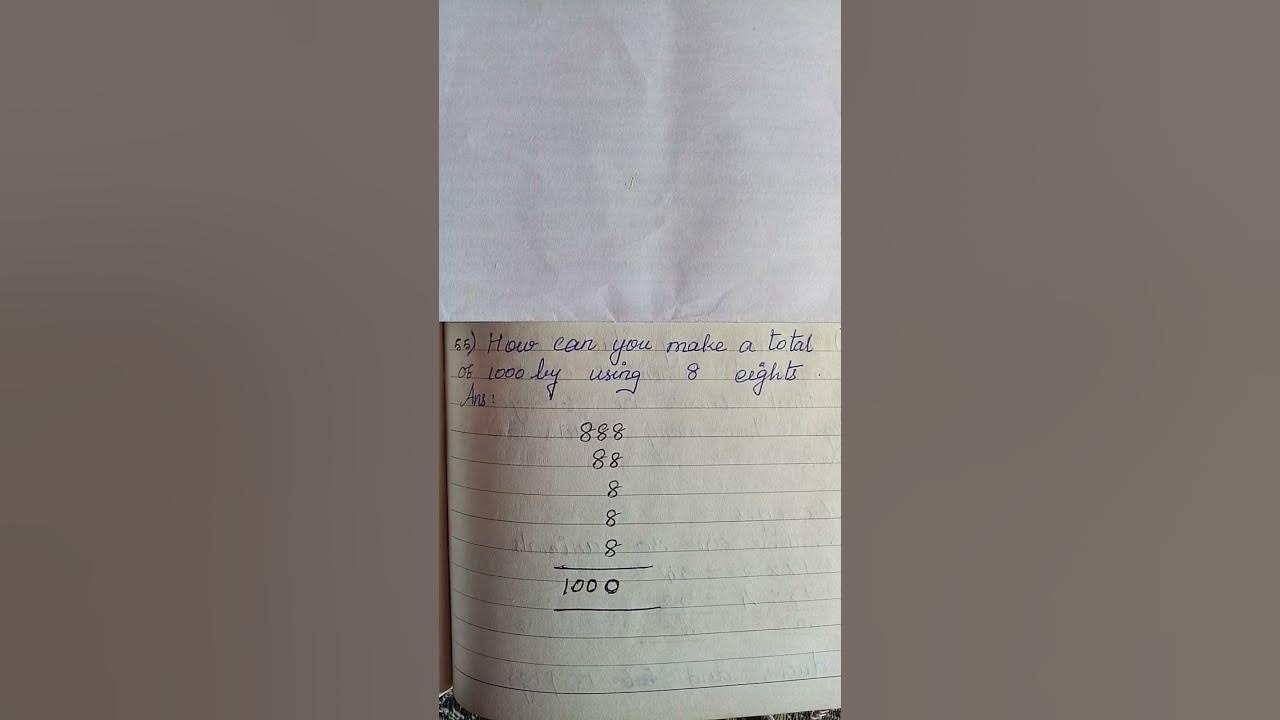 55) How can you make a total
of 1000 by using 8 eights.
Ans:
888
88
8
8
8
1000